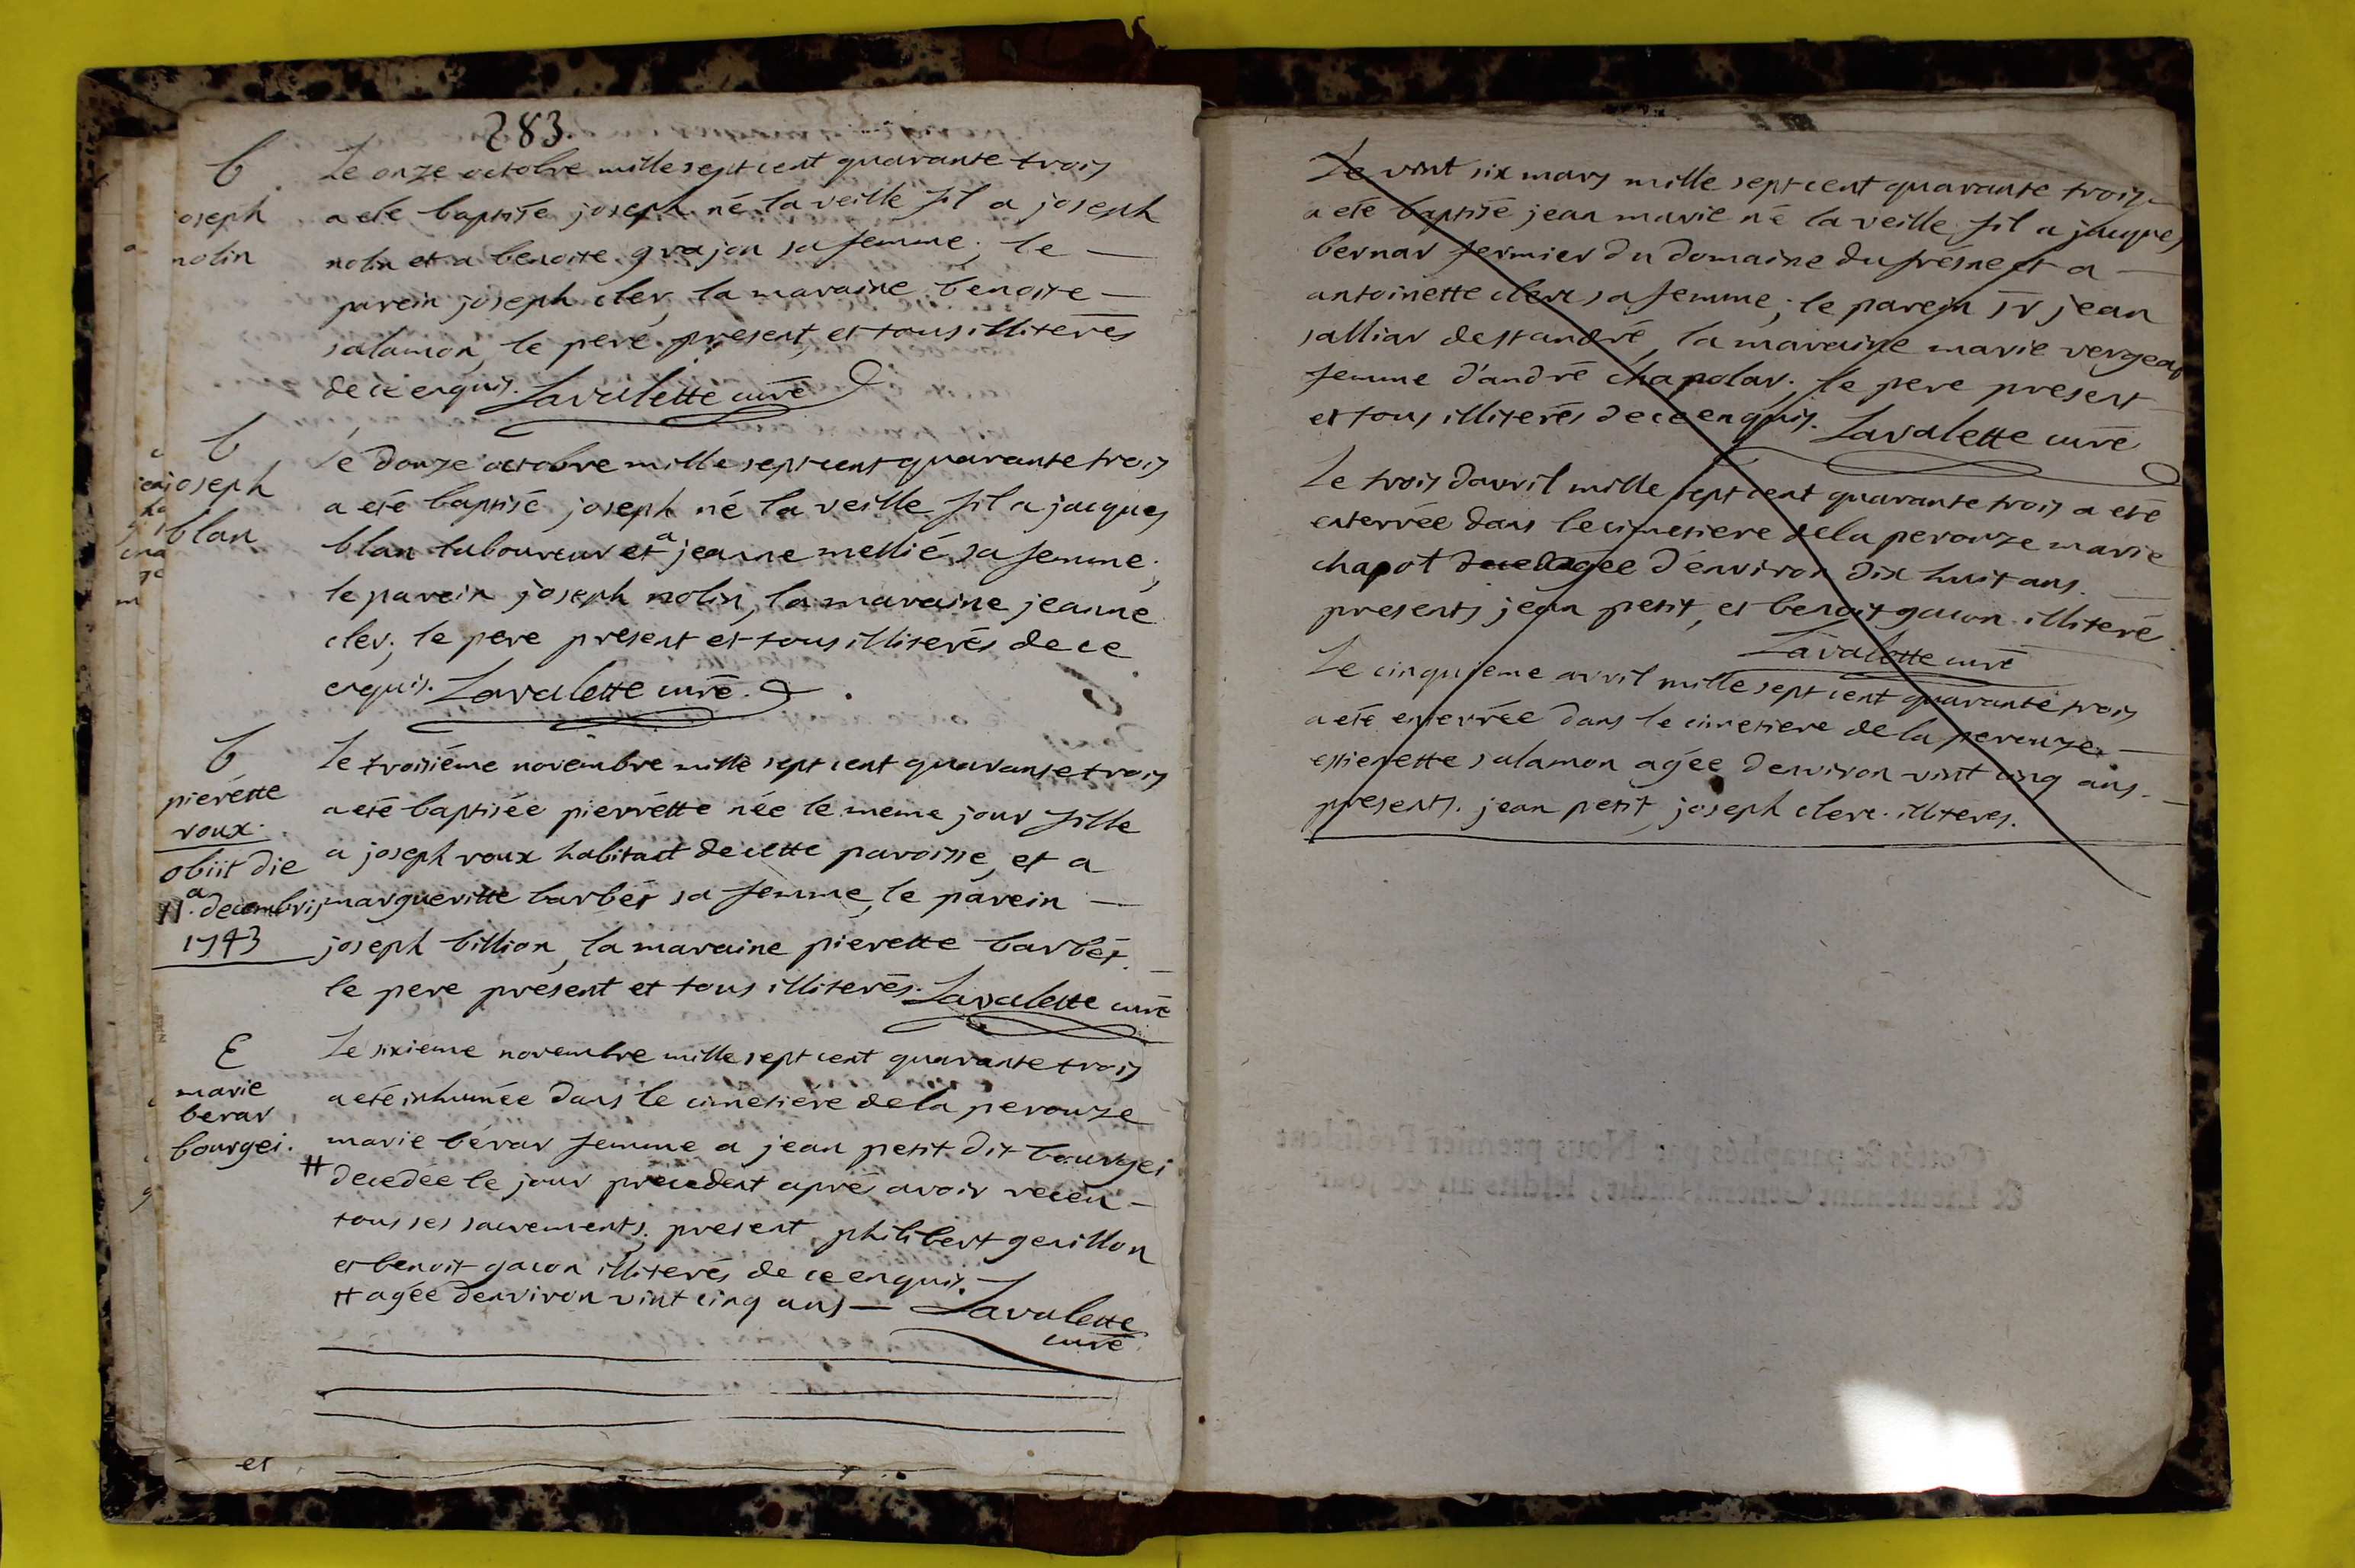 283.
b
joseph
nolin
Le onze octobre mille sept cent quarante trois
a eté baptisé joseph né la veille fil a joseph
nolin et a benoite grajon sa femme; le —
parein joseph cler, la maraine benoite —
salamon, le pere present, et tous illiterés
de ce enquis. Lavalette curé
b
joseph
blan
Le douze octobre mille sept cent quarante trois
a eté baptisé joseph né la veille fil a jacques
blan laboureur et a jeanne mellié sa femme;
le parein joseph nolin, la maraine jeanne
cler; le pere present et tous illiterés de ce
enquis. Lavalette curé.
b
pierétte
roux.
obiit die
11.a decembris
1743
Le troisiéme novembre mille sept cent quarante trois
a eté baptisée pierrétte née le meme jour fille
a joseph roux habitant de cette paroisse, et a
margueritte barbét sa femme, le parein —
joseph billion, la maraine pierette barbét. —
le pere présent et tous illiterés. Lavalette curé
E
marie
berar
bourgei.
Le sixieme novembre mille sept cent quarante trois
a eté inhumée dans le cimetiére de la perouze
marie bérar femme a jean petit dit bourgei
# decedée le jour precedent aprés avoir receu —
tous ses sacrements; present philibert genillon
et benoit gacon illiterés de ce enquis.
# agée denviron vint cinq ans — Lavalette
curé
et
Le vint six mars mille sept cent quarante trois —
a eté baptisé jean marie né la veille fil a jacques
bernar fermier du domaine du frésne et a —
antoinette clerc sa femme; le parein sr jean
salliar de st andré, la maraine marie vergeat
femme d'andré chapolar; le pere present
et tous illiterés de ce enquis. Lavalette curé
Le trois d'avril mille sept cent quarante trois a eté
enterrée dans le cimetiere de la perouze marie
chapot agée d'énviron dix huit ans. —
presents jean petit, et benoit gacon illiteré
Lavalette curé
Le cinquieme avril mille sept cent quarante trois
a eté enterrée dans le cimetiere de la perouze —
estienette salamon agée denviron vint cinq ans. —
presents. jean petit, joseph clerc. illiteres.